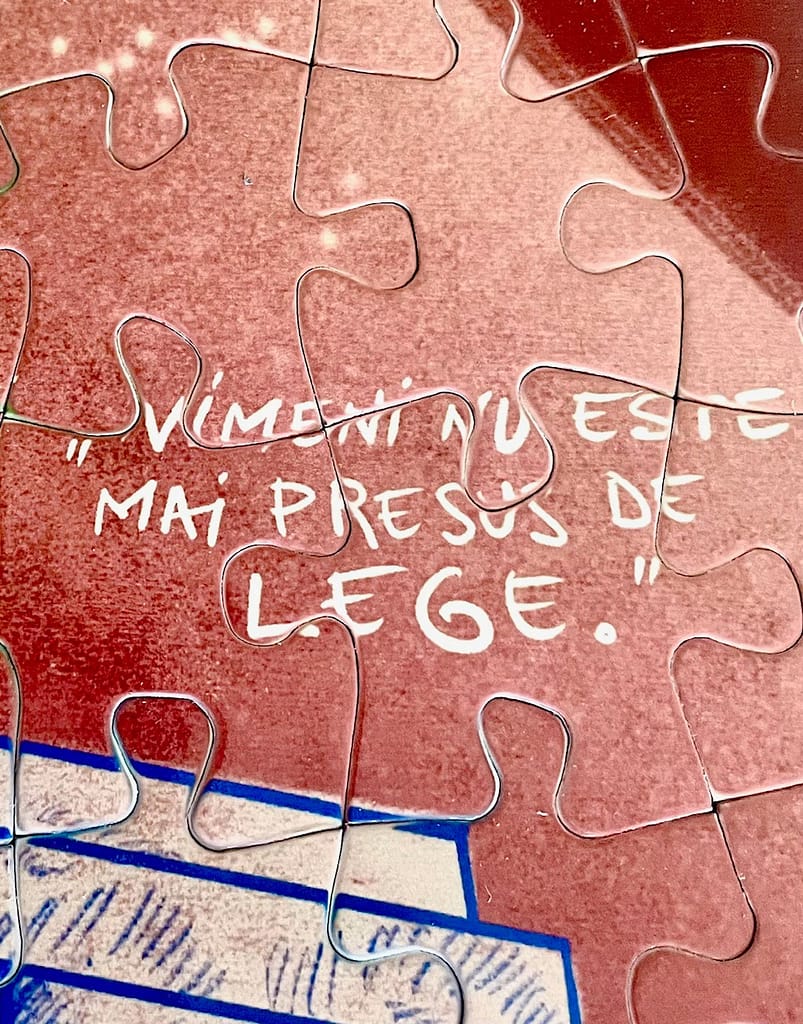 „NiMENi NU ESTE
MAi PRESUS DE
LEGE."